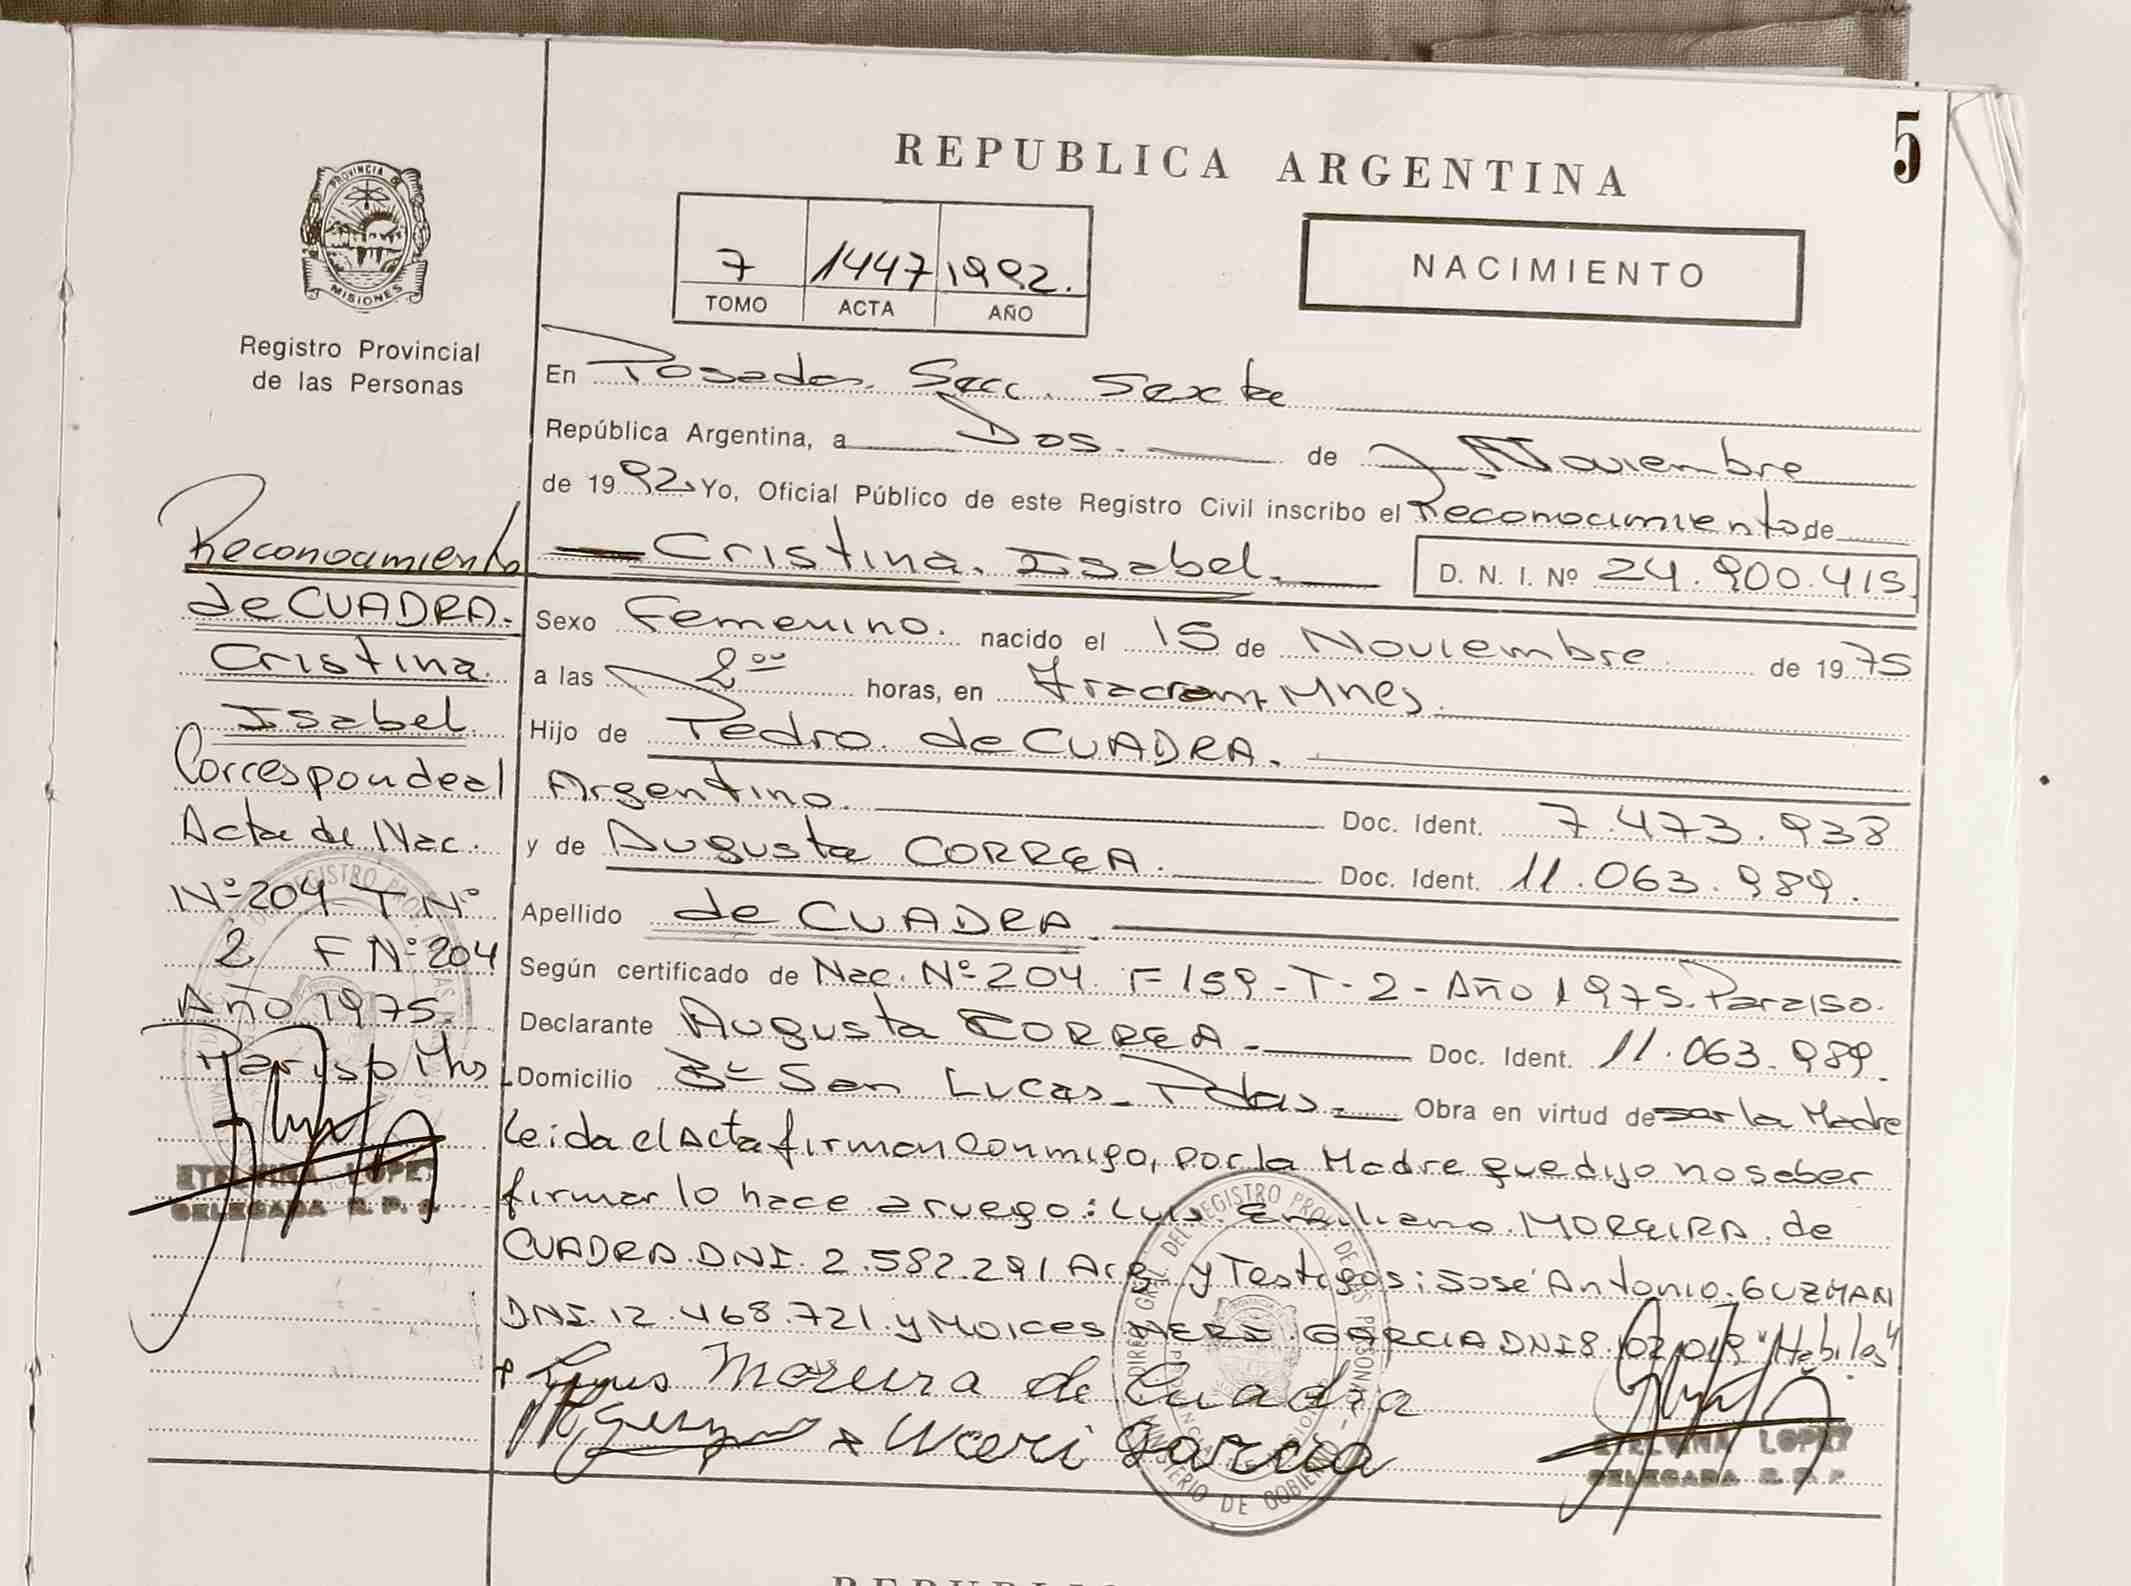 5
REPUBLICA ARGENTINA
NACIMIENTO
7 1447 1992.
TOMO ACTA AÑO
PROVINCIA DE
MISIONES
Registro Provincial
de las Personas
Reconocimiento
de CUADRA.
Cristina
Isabel
Corresponde al
Acta de Nac.
Nº 204 T Nº
2 F Nº 204
Año 1975.
ETELVINA LOPEZ
DELEGADA R. P. P.
En Posadas. Secc. Sexta
República Argentina, a Dos. de Noviembre
de 1992. Yo, Oficial Público de este Registro Civil inscribo el Reconocimiento de
Cristina. Isabel. D. N. I. Nº 24.900.415
Sexo Femenino. nacido el 15 de Noviembre de 1975
a las 2 00 horas, en Mnes.
Hijo de Pedro. de CUADRA.
Argentino. Doc. Ident. 7.473.938
y de Augusta CORREA. Doc. Ident. 11.063.989.
Apellido de CUADRA.
Según certificado de Nac. Nº 204. F 159 - T - 2 - Año 1975. Paraiso.
Declarante Augusta CORREA. Doc. Ident. 11.063.989.
Domicilio Bº San Lucas - Pdas. Obra en virtud de ser la Madre
Leida el Acta firman conmigo, por la Madre que dijo no saber
firmar lo hace a ruego: Luis Emiliano MOREIRA. de
CUADRA. DNI. 2.582.291 Arg. y Testigos: José Antonio. GUZMAN
DNI. 12.468.721. y MOICES NERI. GARCIA DNI 8.102.019 "Habiles"
Luis Moreira de Cuadra
Neri Garcia
DIREC. GRAL. DEL REGISTRO PROV. DE LAS PERSONAS
MINISTERIO DE GOBIERNO
ETELVINA LOPEZ
DELEGADA R. P. P.